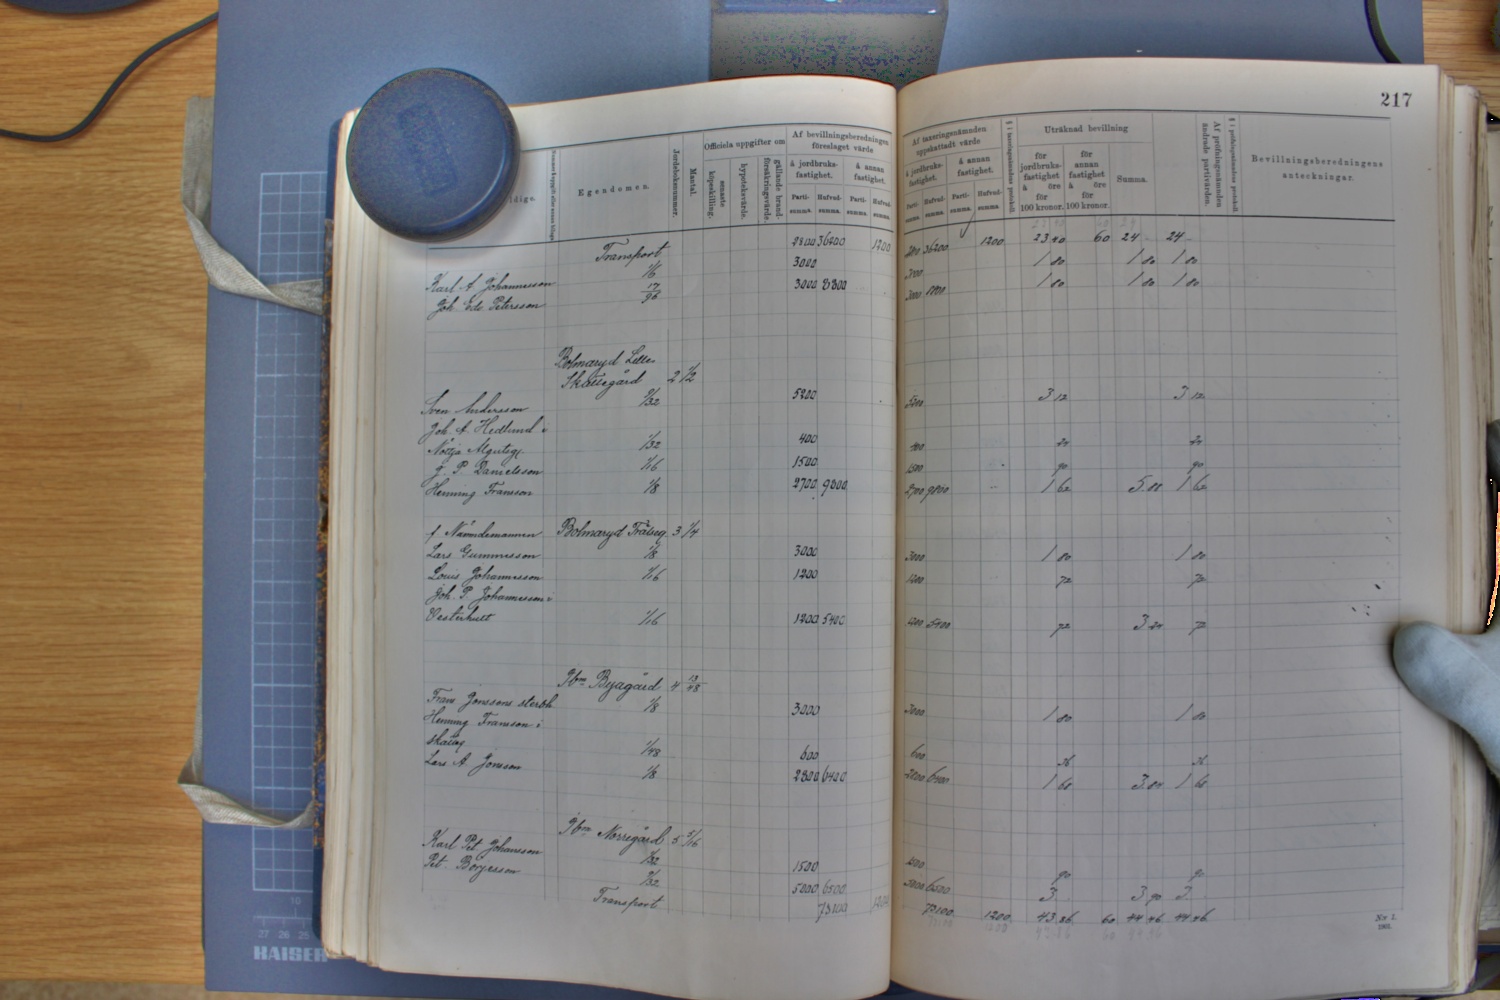 217
Egendomen.
Jordeboksnummer.
Mantal.
Officiela uppgifter om
senaste köpeskilling.
hypoteksvärde.
gällande brandförsäkringsvärde.
Af bevillningsberedningen föreslaget värde
å jordbruksfastighet.
å annan fastighet.
Partisumma.
Hufvudsumma.
Partisumma.
Hufvudsumma.
Af taxeringsnämnden uppskattadt värde
å jordbruksfastighet.
å annan fastighet.
Partisumma.
Hufvudsumma.
Partisumma.
Hufvudsumma.
§ i taxeringsnämndens protokoll.
Uträknad bevillning
för jordbruksfastighet à öre för 100 kronor.
för annan fastighet à öre för 100 kronor.
Summa.
Af pröfningsnämnden ändrade partivärden.
§ i pröfningsnämndens protokoll.
Bevillningsberedningens anteckningar.
Transport 36200 1200 36200 1200 23 40 60 24 24
Karl A Johannesson 1/6 3000 3000 1 80 1 80 1 80
Joh. Edv Petersson 17/96 3000 8800 3000 1 80 1 80 1 80
Bolmaryd Lille
Skattegård 2 1/2
Sven Andersson 5200 5200 3 12 3 12
Joh. A Hedlund i
1/32 400 400 24 24
g. P Danielsson 1/16 1500 1500 90 90
Henning Franson 1/8 2700 9800 2700 9800 1 62 5.88 1 62
f Nämndemannen Bolmaryd 3 1/4
Lars Gummesson 1/8 3000 3000 1 80 1 80
Louis Johannesson 1/16 1200 1200 72 72
Joh. P. Johannesson
Westerhult 1/16 1200 5400 1200 5400 72 3 24 72
Dbm Byagård 4 13/48
Frans Jonssons sterbh 1/8 3000 3000 1 80 1 80
Henning Franson i
Skatteg 1/48 600 600 36 36
Lars A. Jonsson 1/8 2800 6400 2800 6400 1 68 3.84 1 68
Dbm Norregård 5 5/16
Karl Pet Johansson 1500 1500 90 90
Pet. Börjesson 5000 6500 5000 6500 3 3 90 3
Transport 73100 1200 73100 1200 43.86 60 44 46 44 46
N:r 1.
KAISER
10
27 26 25